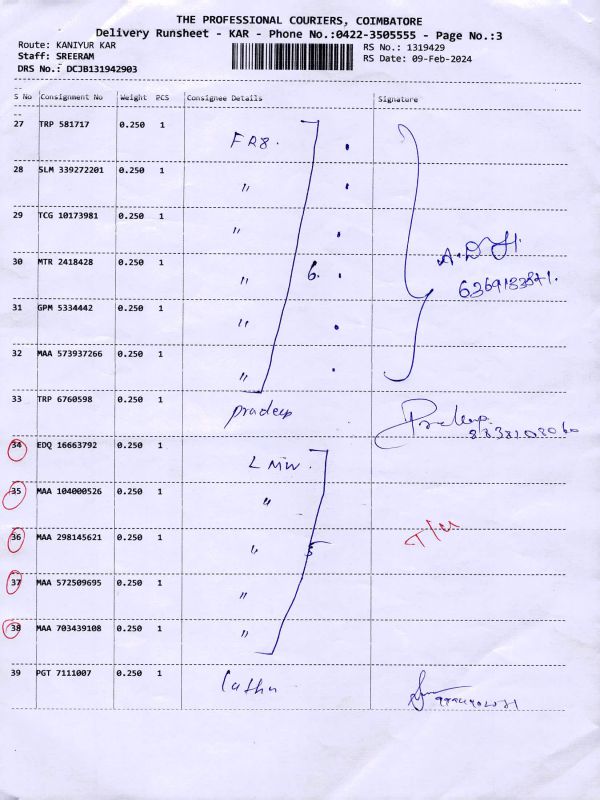 THE PROFESSIONAL COURIERS, COIMBATORE
Delivery Runsheet - KAR - Phone No.:0422-3505555 - Page No.:3
Route: KANIYUR KAR
RS No.: 1319429
Staff: SREERAM
RS Date: 09-Feb-2024
DRS No.: DCJB131942903
S No Consignment No Weight PCS Consignee Details Signature
27 TRP 581717 0.250 1 FRB.
28 SLM 339272201 0.250 1 "
29 TCG 10173981 0.250 1 "
30 MTR 2418428 0.250 1 " 6.
31 GPM 5334442 0.250 1 "
32 MAA 573937266 0.250 1 "
33 TRP 6760598 0.250 1 pradeep Pradeep
34 EDQ 16663792 0.250 1 LMW.
35 MAA 104000526 0.250 1 "
36 MAA 298145621 0.250 1 " 5 T/U
37 MAA 572509695 0.250 1 "
38 MAA 703439108 0.250 1 "
39 PGT 7111007 0.250 1